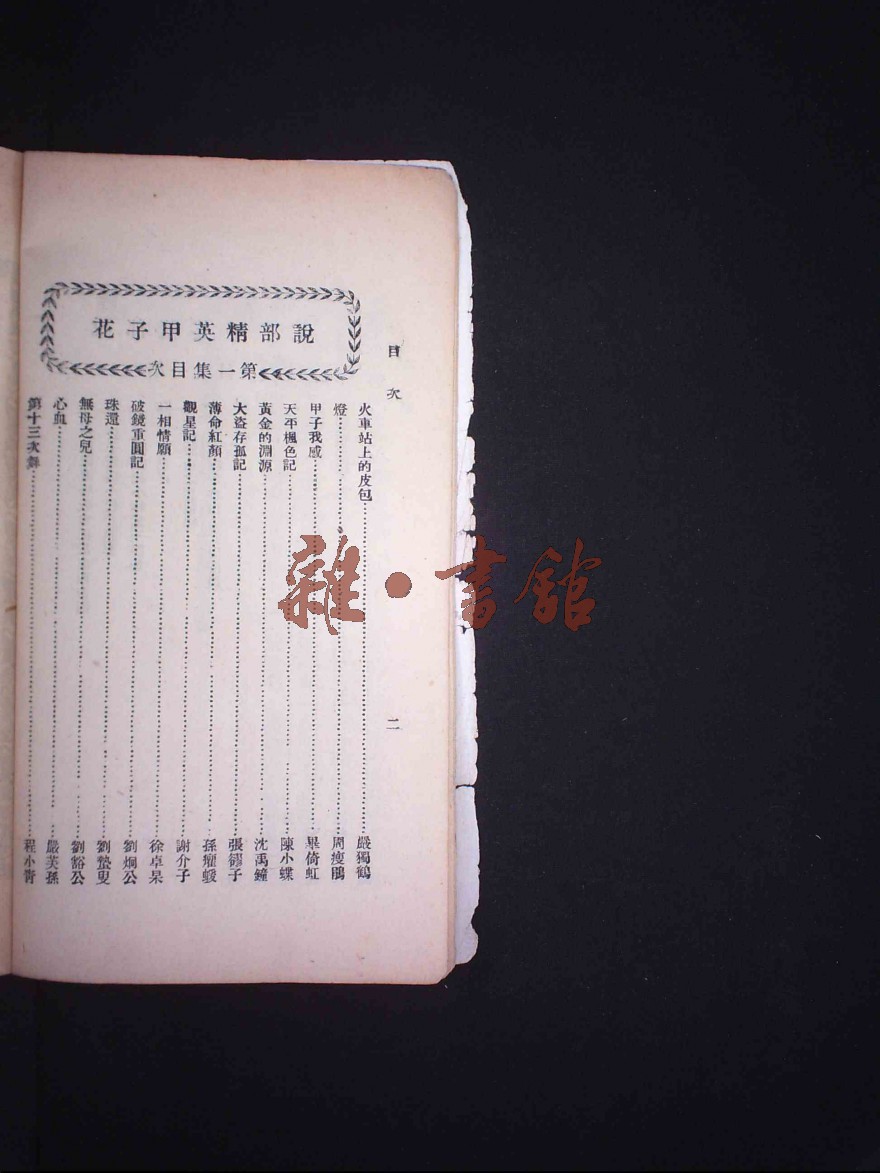 說部精英甲子花
第一集目次
目次
二
火車站上的皮包 嚴獨鶴
燈 周瘦鵑
甲子我感 畢倚虹
天平楓色記 陳小蝶
黃金的淵源 沈禹鐘
大盜存孤記 張碧子
薄命紅顏 孫癯蝯
觀星記 謝介子
一相情願 徐卓呆
破鏡重圓記 劉炯公
珠還 劉蟄叟
無母之兒 劉豁公
心血 嚴芙孫
第十三次 程小青
雜·書館